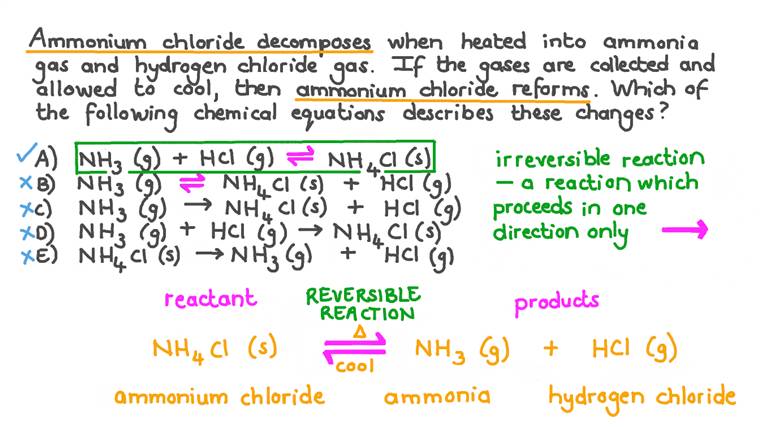 Ammonium chloride decomposes when heated into ammonia
gas and hydrogen chloride gas. If the gases are collected and
allowed to cool, then ammonium chloride reforms. Which of
the following chemical equations describes these changes?
✓A) NH₃ (g) + HCl (g) ⇌ NH₄Cl (s)
×B) NH₃ (g) ⇌ NH₄Cl (s) + HCl (g)
×C) NH₃ (g) → NH₄Cl (s) + HCl (g)
×D) NH₃ (g) + HCl (g) → NH₄Cl (s)
×E) NH₄Cl (s) → NH₃ (g) + HCl (g)
irreversible reaction
– a reaction which
proceeds in one
direction only →
reactant REVERSIBLE products
REACTION
Δ
NH₄Cl (s) ⇌ NH₃ (g) + HCl (g)
cool
ammonium chloride ammonia hydrogen chloride